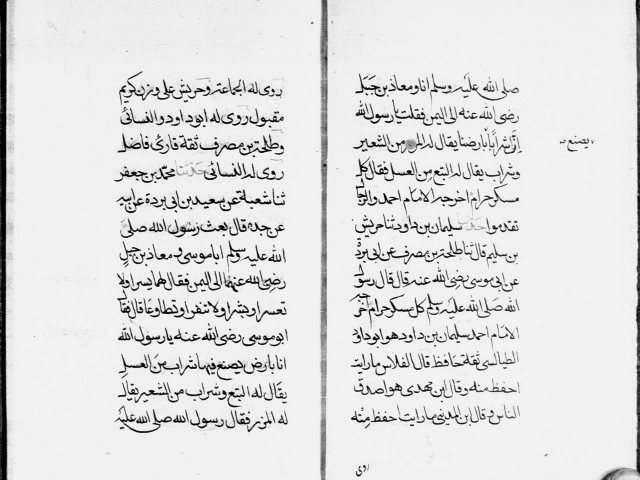 صلى الله عليه وسلم انا ومعاذ بن جبل
رضى الله عنه الى اليمن فقلت يا رسول الله
ان شرابا بارضنا يقال له المزر من الشعير
يصنع
وشراب يقال له البتع من العسل فقال كل
مسكر حرام اخرجه الامام احمد والرجال
تقدموا حدثنا سليمان بن داود ثنا حريش
بن سليم قال ثنا طلحة بن مصرف عن ابى بردة
عن ابى موسى رضى الله عنه قال قال رسول
الله صلى الله عليه وسلم كل مسكر حرام اخرجه
الامام احمد سليمان بن داود هو ابو داود
الطيالسى ثقة حافظ قال الفلاس ما رايت
احفظ منه وقال ابن مهدى هو اصدق
الناس وقال ابن المدينى ما رايت احفظ منه
روى
روى له الجماعة وحريش على وزن كريم
مقبول روى له ابو داود والنسائى
وطلحة بن مصرف ثقة قارئ فاضل
روى له النسائى حدثنا محمد بن جعفر
ثنا شعبة عن سعيد بن ابى بردة عن ابيه
عن جده قال بعث رسول الله صلى
الله عليه وسلم ابا موسى ومعاذ بن جبل
رضى الله عنهما الى اليمن فقال لهما يسرا ولا
تعسرا وبشرا ولا تنفرا وتطاوعا قال فقال
ابو موسى رضى الله عنه يا رسول الله
انا بارض يصنع فيها شراب من العسل
يقال له البتع وشراب من الشعير يقال
له المزر فقال رسول الله صلى الله عليه